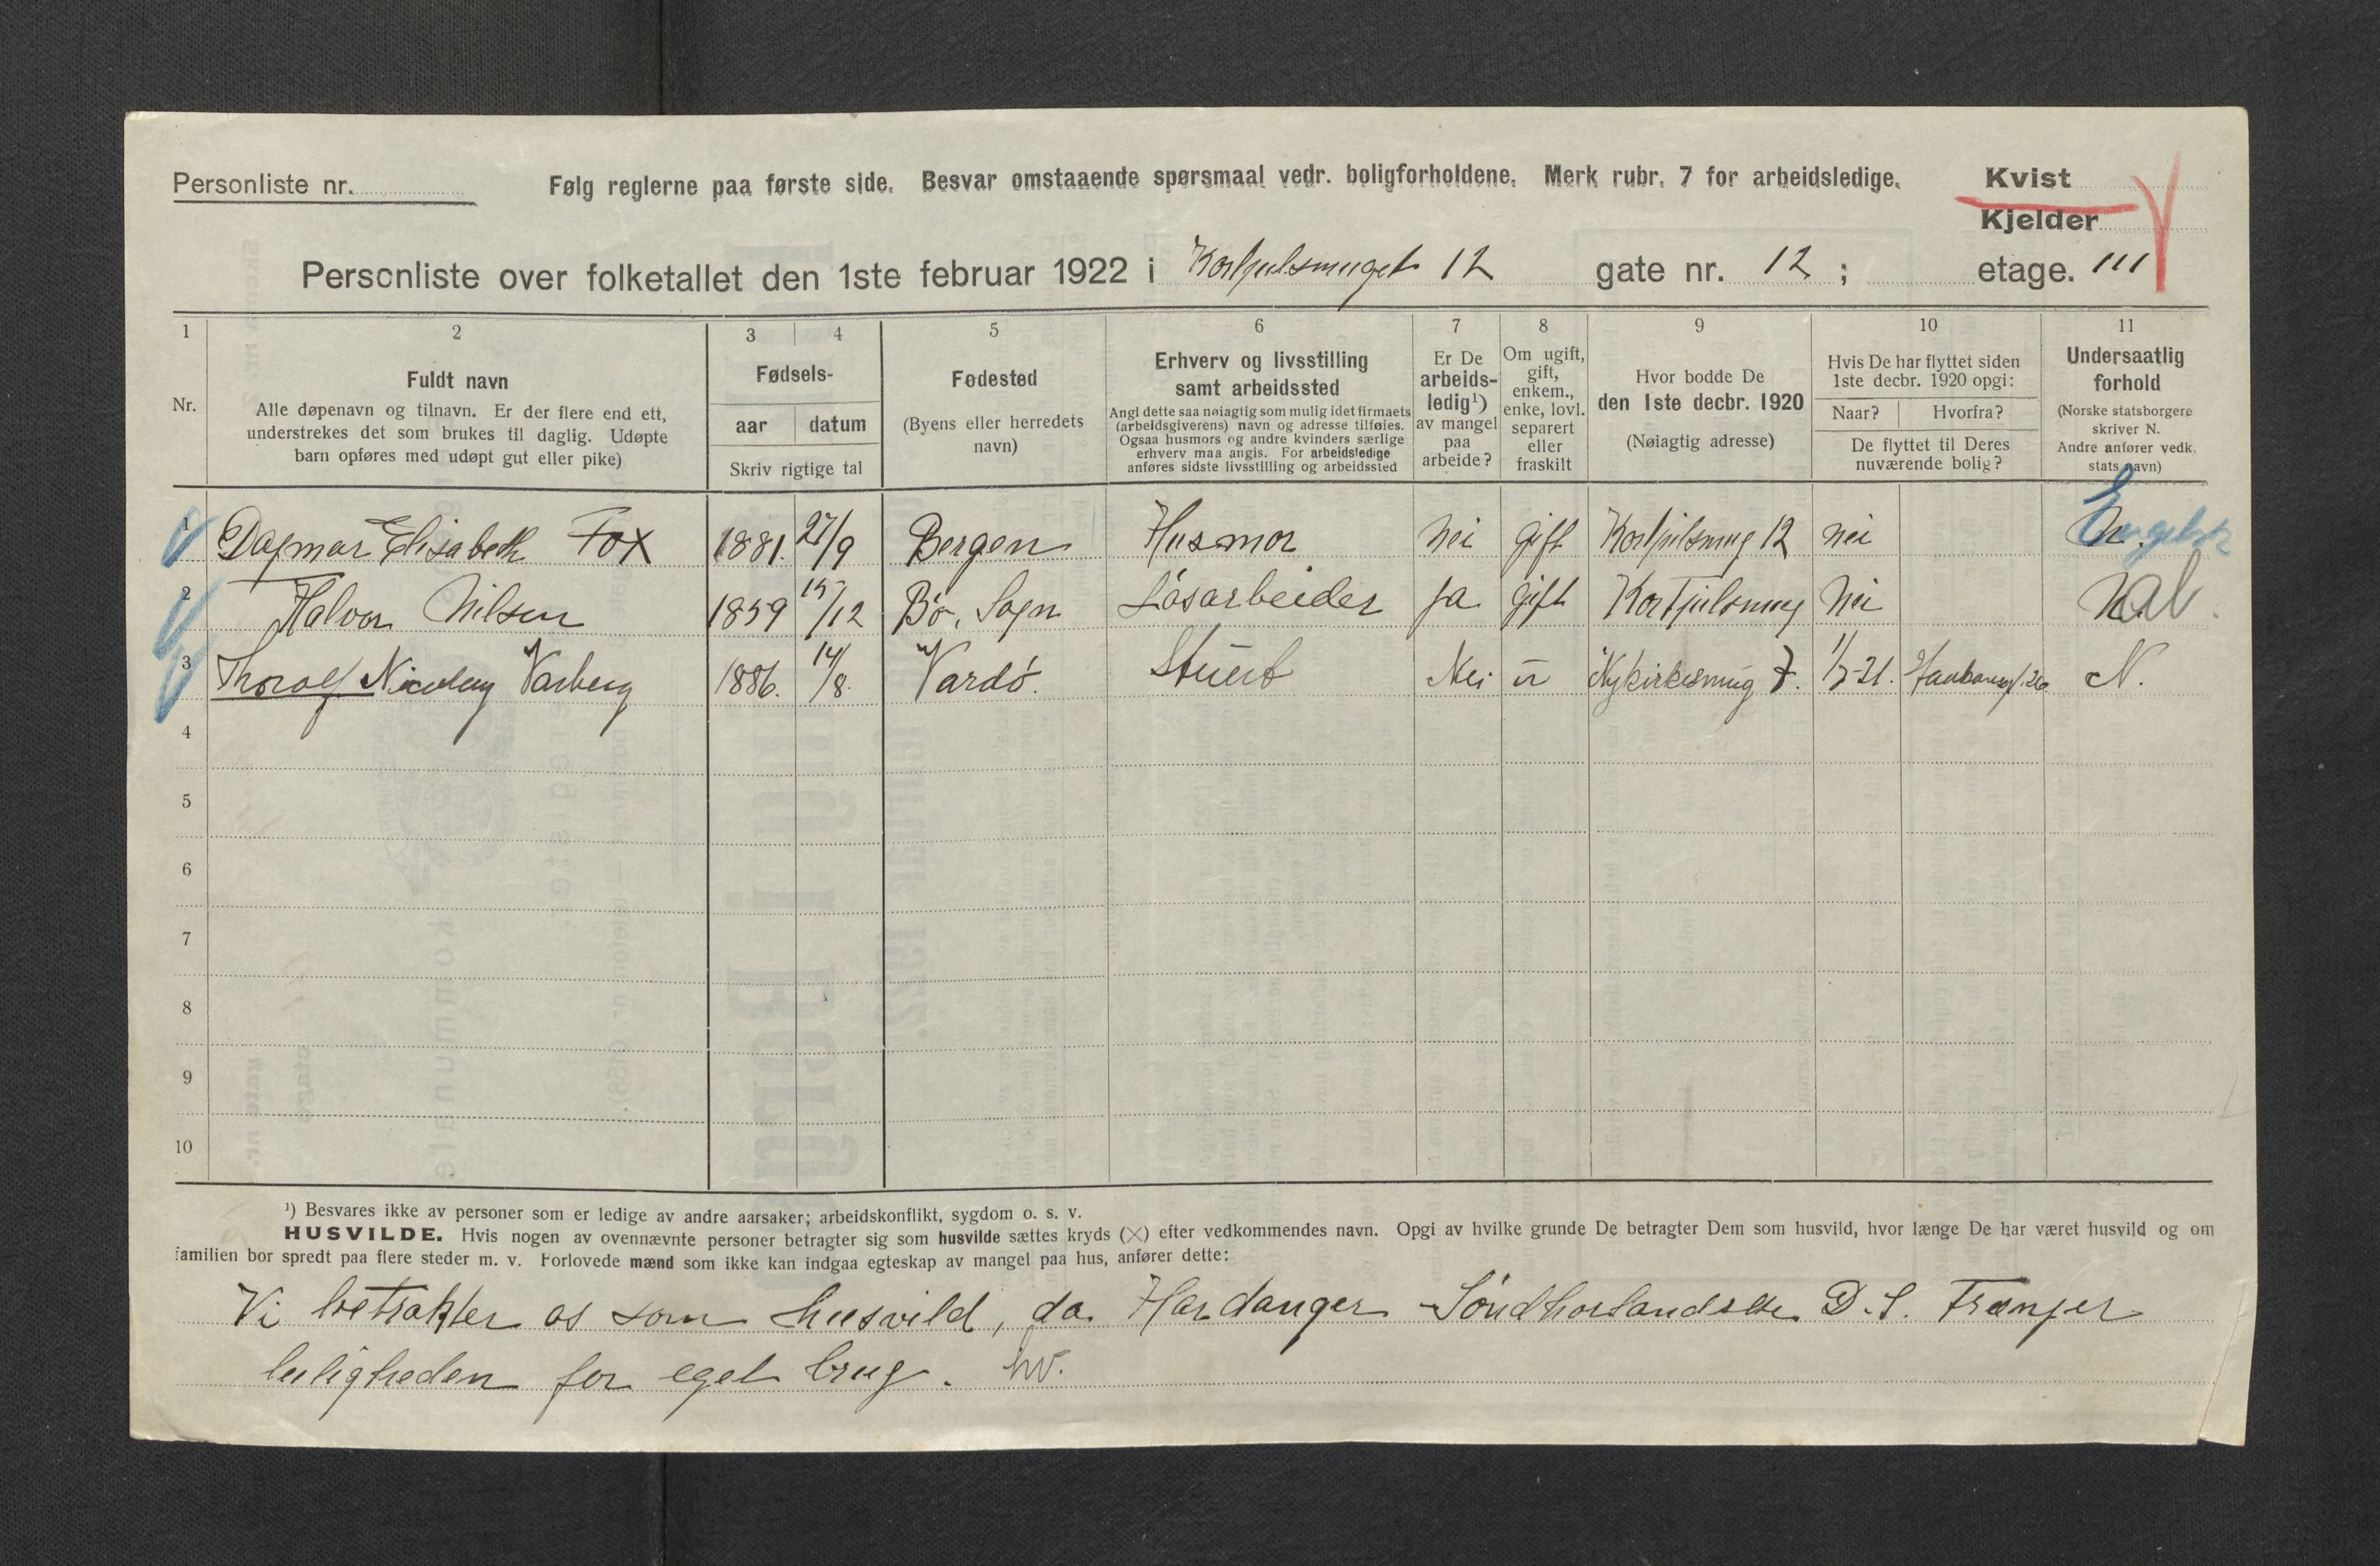 Personliste nr.
Følg reglerne paa første side. Besvar omstaaende spørsmaal vedr. boligforholdene. Merk rubr. 7 for arbeidsledige.
Kvist
Kjelder
Personliste over folketallet den 1ste februar 1922 i 12 gate nr. 12 ; etage. III
1 2 3 4 5 6 7 8 9 10 11
Nr.
Fuldt navn
Alle døpenavn og tilnavn. Er der flere end ett,
understrekes det som brukes til daglig. Udøpte
barn opføres med udøpt gut eller pike)
Fødsels-
aar datum
Skriv rigtige tal
Fødested
(Byens eller herredets
navn)
Erhverv og livsstilling
samt arbeidssted
Angi dette saa nøiagtig som mulig idet firmaets
(arbeidsgiverens) navn og adresse tilføies.
Ogsaa husmors og andre kvinders særlige
erhverv maa angis. For arbeidsledige
anføres sidste livsstilling og arbeidssted
Er De
arbeids-
ledig¹)
av mangel
paa
arbeide?
Om ugift,
gift,
enkem.,
enke, lovl.
separert
eller
fraskilt
Hvor bodde De
den 1ste decbr. 1920
(Nøiagtig adresse)
Hvis De har flyttet siden
1ste decbr. 1920 opgi:
Naar? Hvorfra?
De flyttet til Deres
nuværende bolig?
Undersaatlig
forhold
(Norske statsborgere
skriver N.
Andre anfører vedk.
stats navn)
1 Dagmar Elisabeth Fox 1881. 27/9 Bergen Husmor Nei gift 12 nei N. Engelsk
2 Halvor Nilsen 1859 15/12 Bö, Sogn Løsarbeider Ja gift Nei N
3 Thorolf Nicolay Varberg 1886. 14/8. Vardö. Stuert Nei u Nykirkesmug 7. N.
4
5
6
7
8
9
10
¹) Besvares ikke av personer som er ledige av andre aarsaker; arbeidskonflikt, sygdom o. s. v.
HUSVILDE. Hvis nogen av ovennævnte personer betragter sig som husvilde sættes kryds (×) efter vedkommendes navn. Opgi av hvilke grunde De betragter Dem som husvild, hvor længe De har været husvild og om
familien bor spredt paa flere steder m. v. Forlovede mænd som ikke kan indgaa egteskap av mangel paa hus, anfører dette:
Vi betrakter os som husvild, da Hardanger Söndhorlandske D.S. Trænger
leiligheden for eget brug. hv.